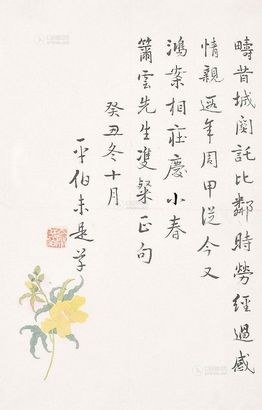 疇昔城闉託比鄰時勞經過感
情親遐年周甲從今又
鴻案相莊慶小春
簫雲先生雙粲正句
癸丑冬十月
平伯未是草